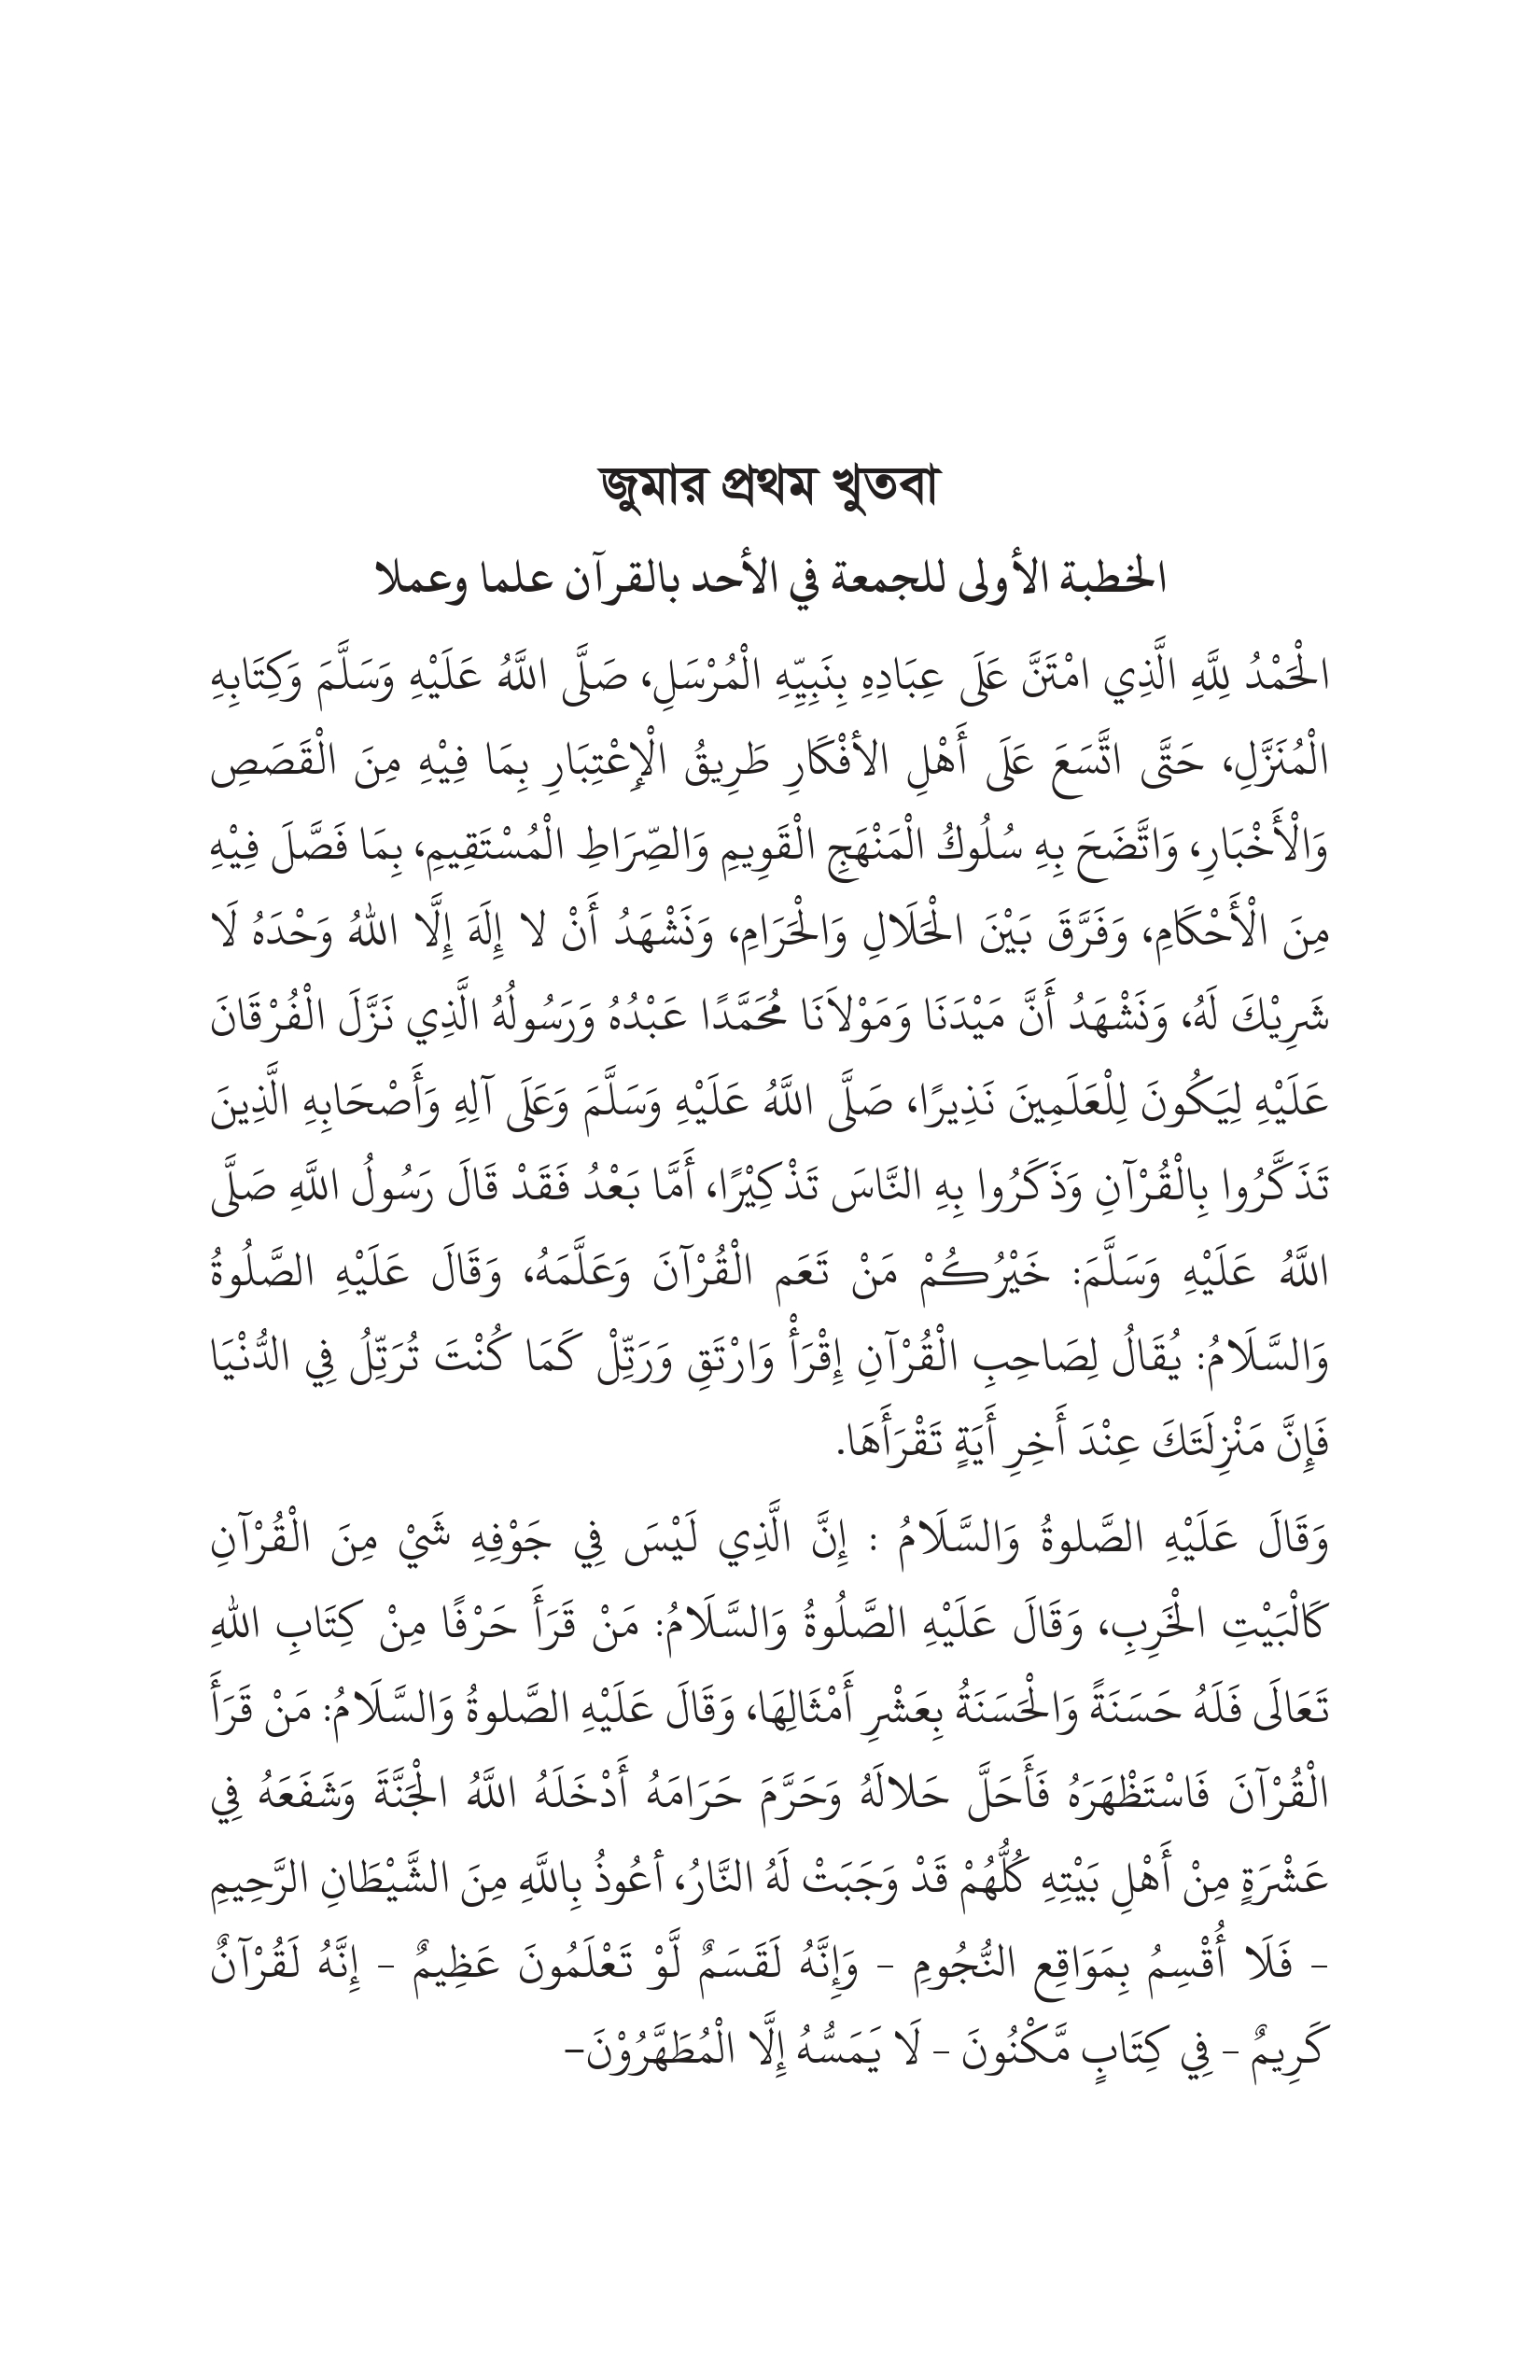 জুমার প্রথম খুতবা
الخطبة الأولى للجمعة في الأحد بالقرآن علما وعملا
الْحَمْدُ لِلَّهِ الَّذِي امْتَنَّ عَلَى عِبَادِهِ بِنَبِيِّهِ الْمُرْسَلِ، صَلَّى اللَّهُ عَلَيْهِ وَسَلَّمَ وَكِتَابِهِ
الْمُنَزَّلِ، حَتَّى اتَّسَعَ عَلَى أَهْلِ الأفْكَارِ طَرِيقُ الْإِعْتِبَارِ بِمَا فِيْهِ مِنَ الْقَصَصِ
وَالْأَخْبَارِ، وَاتَّضَحَ بِهِ سُلُوكُ الْمَنْهَجِ الْقَوِيمِ وَالصِّرَاطِ الْمُسْتَقِيمِ، بِمَا فَصَّلَ فِيْهِ
مِنَ الْأَحْكَامِ، وَفَرَّقَ بَيْنَ الْحَلَالِ وَالْحَرَامِ، وَنَشْهَدُ أَنْ لا إِلَهَ إِلَّا اللهُ وَحْدَهُ لَا
شَرِيْكَ لَهُ، وَنَشْهَدُ أَنَّ مَيْدَنَا وَمَوْلاَنَا مُحَمَّدًا عَبْدُهُ وَرَسُولُهُ الَّذِي نَزَّلَ الْفُرْقَانَ
عَلَيْهِ لِيَكُونَ لِلْعَلَمِينَ نَذِيرًا، صَلَّى اللَّهُ عَلَيْهِ وَسَلَّمَ وَعَلَى آلِهِ وَأَصْحَابِهِ الَّذِينَ
تَذَكَّرُوا بِالْقُرْآنِ وَذَكَرُوا بِهِ النَّاسَ تَذْكِيْرًا، أَمَّا بَعْدُ فَقَدْ قَالَ رَسُولُ اللَّهِ صَلَّى
اللَّهُ عَلَيْهِ وَسَلَّمَ: خَيْرُكُمْ مَنْ تَعَم الْقُرْآنَ وَعَلَّمَهُ، وَقَالَ عَلَيْهِ الصَّلُوةُ
وَالسَّلَامُ: يُقَالُ لِصَاحِبِ الْقُرْآنِ إِقْرَأْ وَارْتَقِ وَرَتِّلْ كَمَا كُنْتَ تُرَتِّلُ فِي الدُّنْيَا
فَإِنَّ مَنْزِلَتَكَ عِنْدَ أَخِرِ أَيَةٍ تَقْرَأَهَا.
وَقَالَ عَلَيْهِ الصَّلوةُ وَالسَّلَامُ : إِنَّ الَّذِي لَيْسَ فِي جَوْفِهِ شَيْ مِنَ الْقُرْآنِ
كَالْبَيْتِ الْخَرِبِ، وَقَالَ عَلَيْهِ الصَّلُوةُ وَالسَّلَامُ: مَنْ قَرَأَ حَرْفًا مِنْ كِتَابِ اللهِ
تَعَالَى فَلَهُ حَسَنَةً وَالْحَسَنَةُ بِعَشْرِ أَمْثَالِهَا، وَقَالَ عَلَيْهِ الصَّلوةُ وَالسَّلَامُ: مَنْ قَرَأَ
الْقُرْآنَ فَاسْتَظْهَرَهُ فَأَحَلَّ حَلالَهُ وَحَرَّمَ حَرَامَهُ أَدْخَلَهُ اللَّهُ الْجَنَّةَ وَشَفَعَهُ فِي
عَشْرَةٍ مِنْ أَهْلِ بَيْتِهِ كُلُّهُمْ قَدْ وَجَبَتْ لَهُ النَّارُ، أعُوذُ بِاللَّهِ مِنَ الشَّيْطَانِ الرَّحِيمِ
– فَلَا أُقْسِمُ بِمَوَاقِع النُّجُومِ – وَإِنَّهُ لَقَسَمٌ لَّوْ تَعْلَمُونَ عَظِيمٌ – إِنَّهُ لَقُرْآنٌ
كَرِيمٌ – فِي كِتَابٍ مَّكْنُونَ – لَا يَمَسُّهُ إِلَّا الْمُطَهَّرُوْنَ–